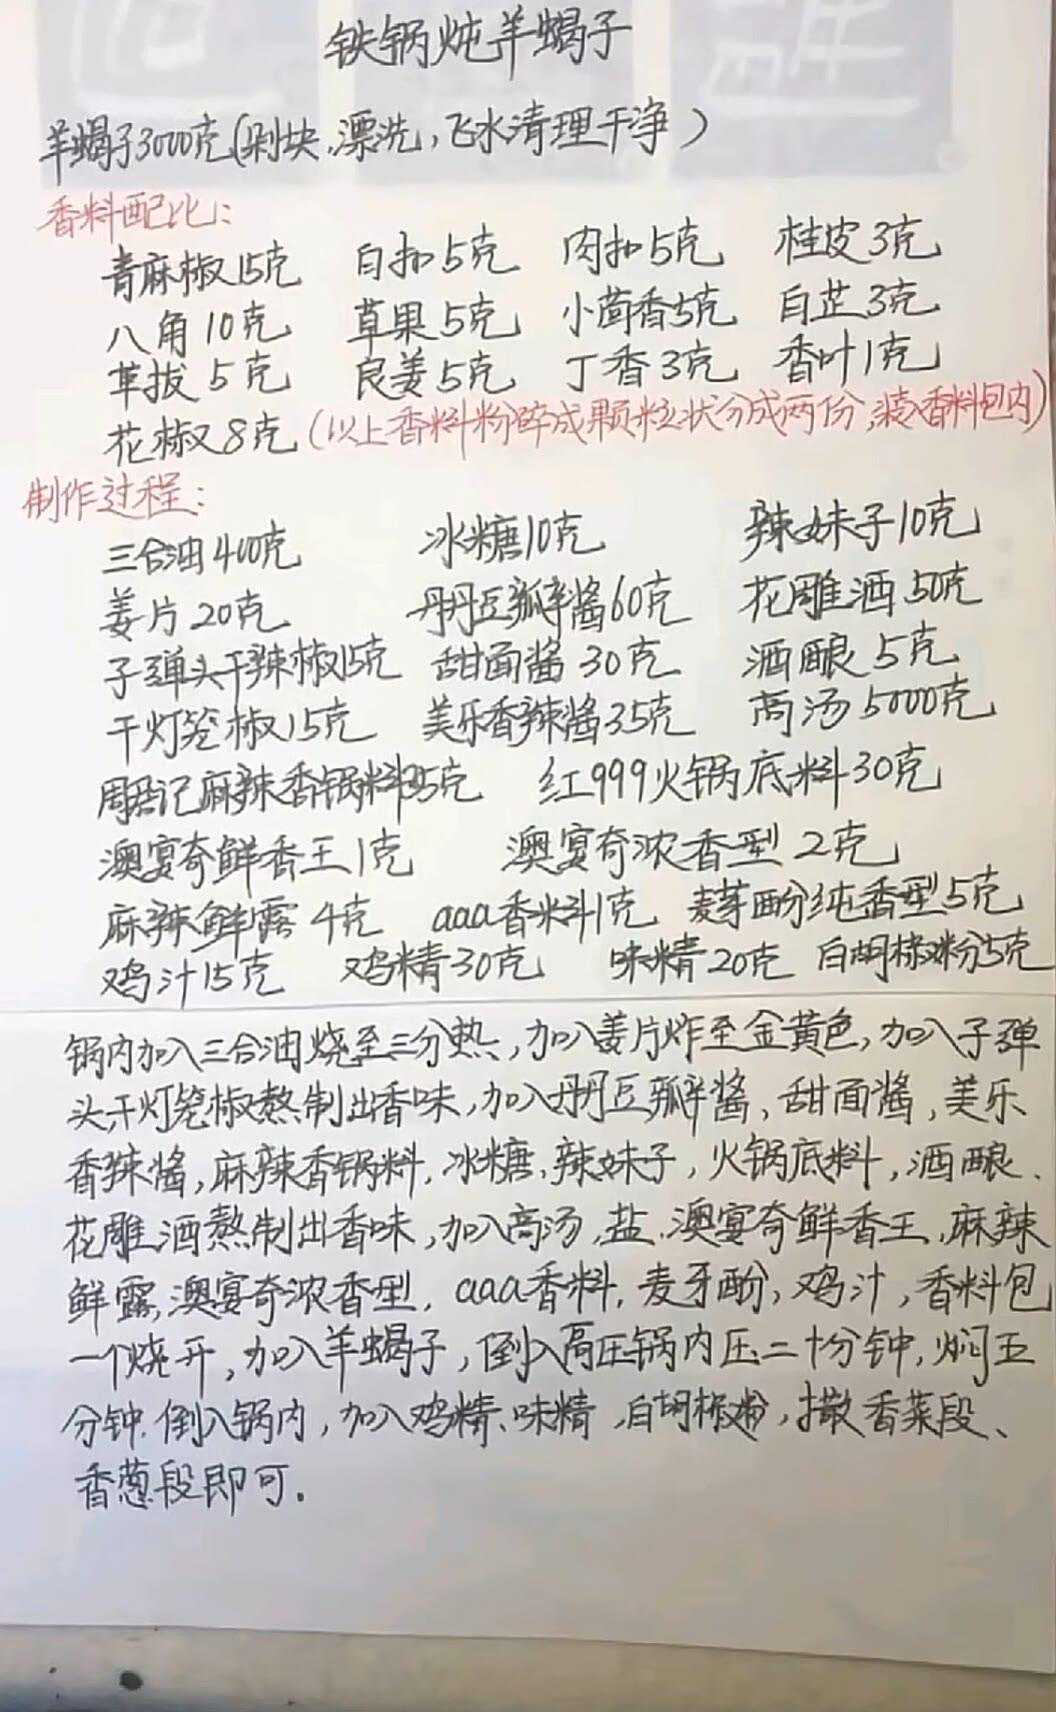 铁锅炖羊蝎子
羊蝎子3000克(剁块,漂洗,飞水清理干净)
香料配比:
青麻椒15克 白扣5克 肉扣5克 桂皮3克
八角10克 草果5克 小茴香5克 白芷3克
荜拔5克 良姜5克 丁香3克 香叶1克
花椒8克(以上香料粉碎成颗粒状分成两份,装入香料包内)
制作过程:
三合油400克 冰糖10克 辣妹子10克
姜片20克 丹丹豆瓣酱60克 花雕酒50克
子弹头干辣椒15克 甜面酱30克 酒酿5克
干灯笼椒15克 美乐香辣酱35克 高汤5000克
周君记麻辣香锅料35克 红999火锅底料30克
澳宴奇鲜香王1克 澳宴奇浓香型2克
麻辣鲜露4克 aaa香料1克 麦芽酚纯香型5克
鸡汁15克 鸡精30克 味精20克 白胡椒粉5克
锅内加入三合油烧至三分热,加入姜片炸至金黄色,加入子弹
头干灯笼椒熬制出香味,加入丹丹豆瓣酱、甜面酱,美乐
香辣酱,麻辣香锅料,冰糖,辣妹子,火锅底料,酒酿、
花雕酒熬制出香味,加入高汤,盐,澳宴奇鲜香王,麻辣
鲜露,澳宴奇浓香型,aaa香料,麦牙酚,鸡汁,香料包
一个烧开,加入羊蝎子,倒入高压锅内压二十分钟,焖五
分钟.倒入锅内,加入鸡精、味精,白胡椒粉,撒香菜段、
香葱段即可.